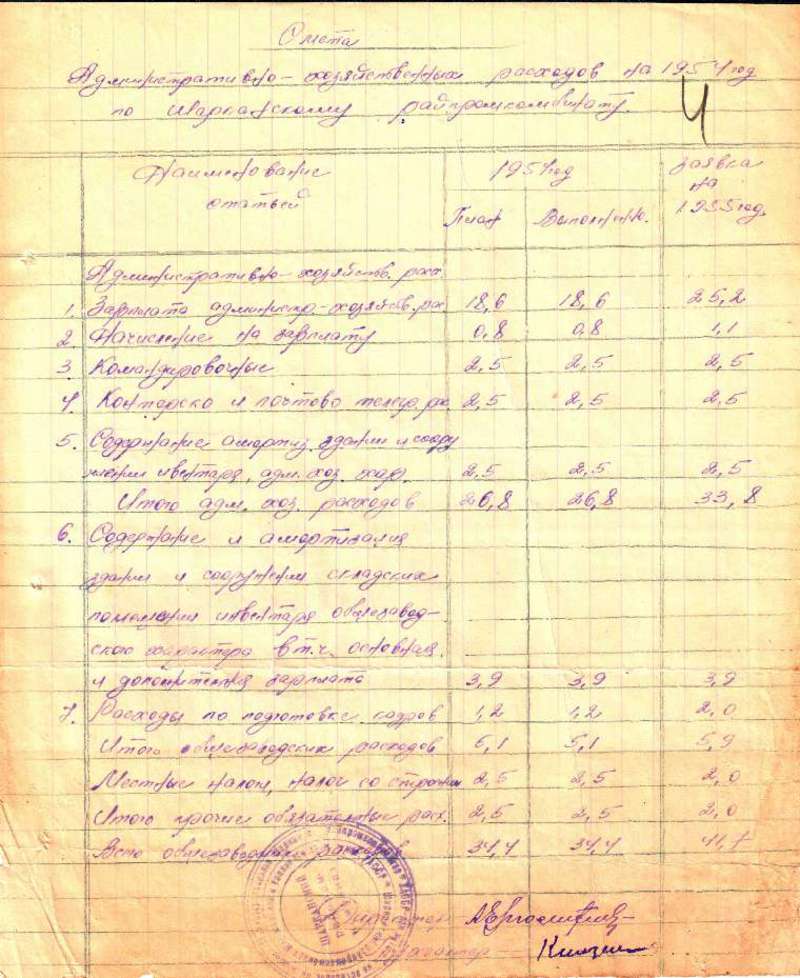 Смета
Административно-хозяйственных расходов на 1954 год
по Шарканскому райпромкомбинату.
4
Наименование статьей 1954 год Заявка на 1955 год.
План Выполнен.
Административно-хозяйств. расх
1. Зарплата администр.-хозяйств. рас 18,6 18,6 25,2
2. Начисление на зарплату 0,8 0,8 1,1
3 Командировочные 2,5 2,5 2,5
4. Конторско и почтово телегр. рас. 2,5 2,5 2,5
5. Содержание амортиз. здании и соору
жении инвентаря, адм. хоз. хар. 2,5 2,5 2,5
Итого адм. хоз. расходов 26,8 26,8 33,8
6. Содержание и амортизация
здании и сооружении складских
помещении инвентаря общезавод-
ского характера в т.ч. основная
и дополнительная зарплата 3,9 3,9 3,9
7. Расходы по подготовке кадров 1,2 1,2 2,0
Итого общезаводских расходов 5,1 5,1 5,9
Местные налоги, налог со строений 2,5 2,5 2,0
Итого прочие обязательные расх. 2,5 2,5 2,0
Всго общезаводских расходов 34,4 34,4 41,7
Директор
Бухгалтер